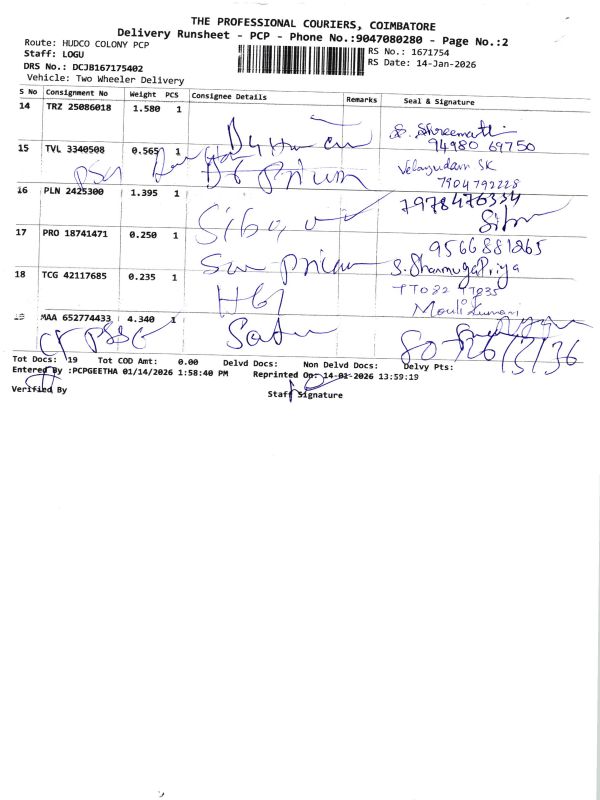 THE PROFESSIONAL COURIERS, COIMBATORE
Delivery Runsheet - PCP - Phone No.:9047080280 - Page No.:2
Route: HUDCO COLONY PCP
RS No.: 1671754
Staff: LOGU
RS Date: 14-Jan-2026
DRS No.: DCJB167175402
Vehicle: Two Wheeler Delivery
S No Consignment No Weight PCS Consignee Details Remarks Seal & Signature
14 TRZ 25086018 1.580 1
S. Shreemathi
94980 69750
15 TVL 3340508 0.565 1
Velayudam SK
7904792228
16 PLN 2425300 1.395 1
7978476334
Siba
17 PRO 18741471 0.250 1
9566881265
18 TCG 42117685 0.235 1
S. Shanmugapriya
H61
Mouli kumari
19 MAA 652774433 4.340 1
Tot Docs: 19 Tot COD Amt: 0.00 Delvd Docs: Non Delvd Docs: Delvy Pts:
Entered By :PCPGEETHA 01/14/2026 1:58:40 PM Reprinted On: 14-01-2026 13:59:19
Verified By
Staff Signature